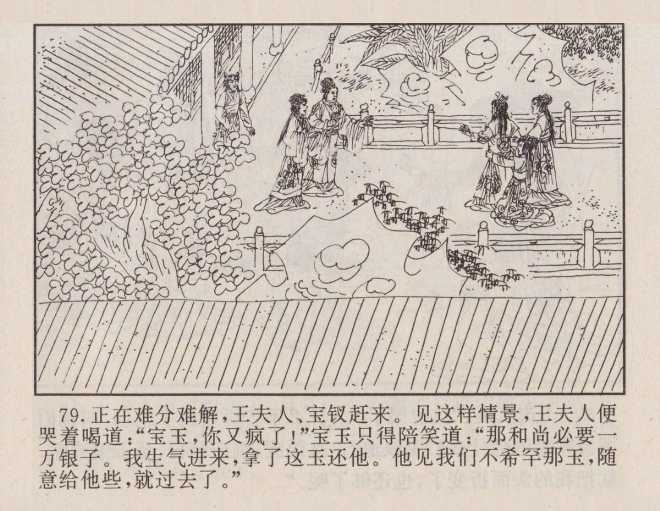 79. 正在难分难解，王夫人、宝钗赶来。见这样情景，王夫人便
哭着喝道：“宝玉，你又疯了！”宝玉只得陪笑道：“那和尚必要一
万银子。我生气进来，拿了这玉还他。他见我们不希罕那玉，随
意给他些，就过去了。”